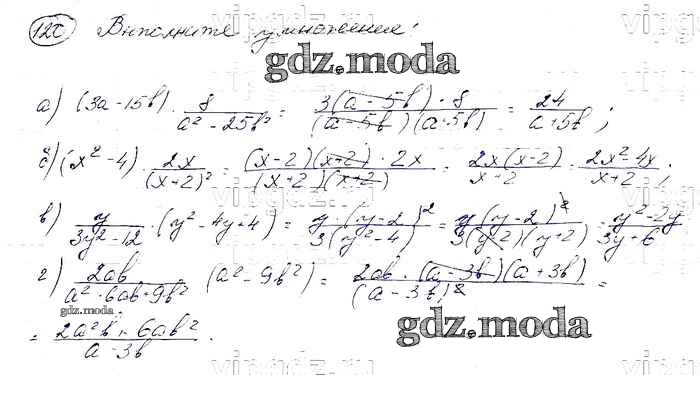 120 Выполните умножение:
gdz.moda
а) (3a - 15b) · 8/(a² - 25b²) = 3(a - 5b) · 8/((a - 5b)(a + 5b)) = 24/(a + 5b);
б) (x² - 4) · 2x/(x+2)² = (x-2)(x+2) · 2x/((x+2)(x+2)) = 2x(x-2)/(x+2) = (2x² - 4x)/(x+2);
в) y/(3y² - 12) · (y² - 4y + 4) = y · (y-2)²/(3(y² - 4)) = y(y-2)²/(3(y-2)(y+2)) = (y² - 2y)/(3y + 6)
г) 2ab/(a² · 6ab + 9b²) (a² - 9b²) = 2ab · (a - 3b)(a + 3b)/(a - 3b)² =
gdz.moda
= (2a²b + 6ab²)/(a - 3b).
gdz.moda